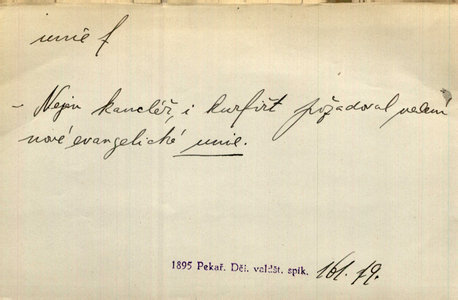 unie f
– Nejen kancléř, i kurfiřt požadoval vedení
nové evangelické unie.
1895 Pekař. Děj. valdšt. spik. 161.19.